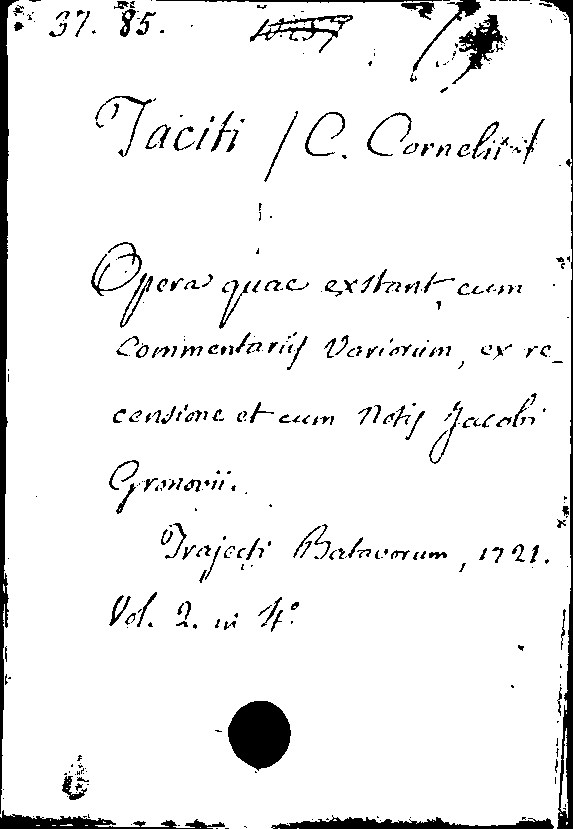 37. 85.
Taciti / C. Cornelii /
Opera quae exstant, cum
commentariis Variorum, ex re-
censione et cum Notis Jacobi
Gronovii.
Trajecti Batavorum, 1721.
Vol. 2. in 4°